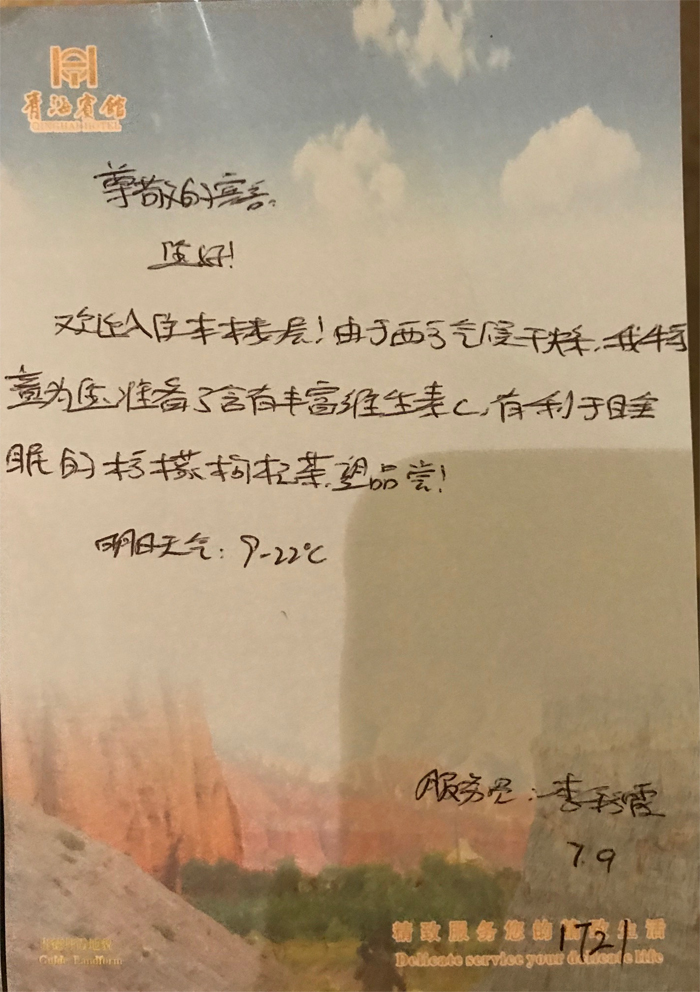 青海宾馆
QINGHAI HOTEL
尊敬的宾客:
您好!
欢迎入住本楼层!由于西宁气候干燥,我特
意为您准备了含有丰富维生素C,有利于睡
眠的柠檬枸杞茶,望品尝!
明日天气:9-22℃
服务员:李彩霞
7.9
精致服务您的精致生活
1721
Delicate service your delicate life
Landform